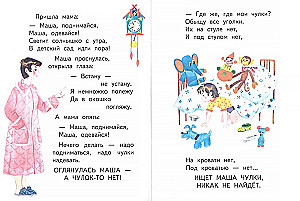 Пришла мама:
— Маша, поднимайся,
Маша, одевайся!
Светит солнышко с утра,
В детский сад идти пора!
Маша проснулась,
открыла глаза:
— Встану —
не устану.
Я немножко полежу
Да в окошко
погляжу.
А мама опять:
— Маша, поднимайся,
Маша, одевайся!
Нечего делать — надо
подниматься, надо чулки
надевать.
ОГЛЯНУЛАСЬ МАША —
А ЧУЛОК-ТО НЕТ!
— Где же, где мои чулки?
Обыщу все уголки.
Их на стуле нет,
И под стулом нет,
На кровати нет,
Под кроватью — нет...
ИЩЕТ МАША ЧУЛКИ,
НИКАК НЕ НАЙДЁТ.